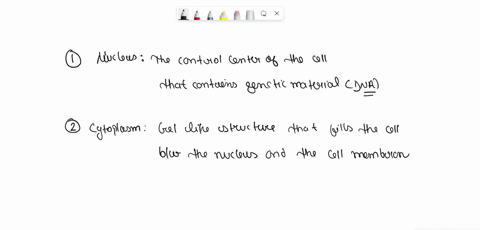 ① Nucleus: The control center of the cell
that contains genetic material (DNA)
② Cytoplasm: Gel like structure that fills the cell
b/w the nucleus and the cell membran